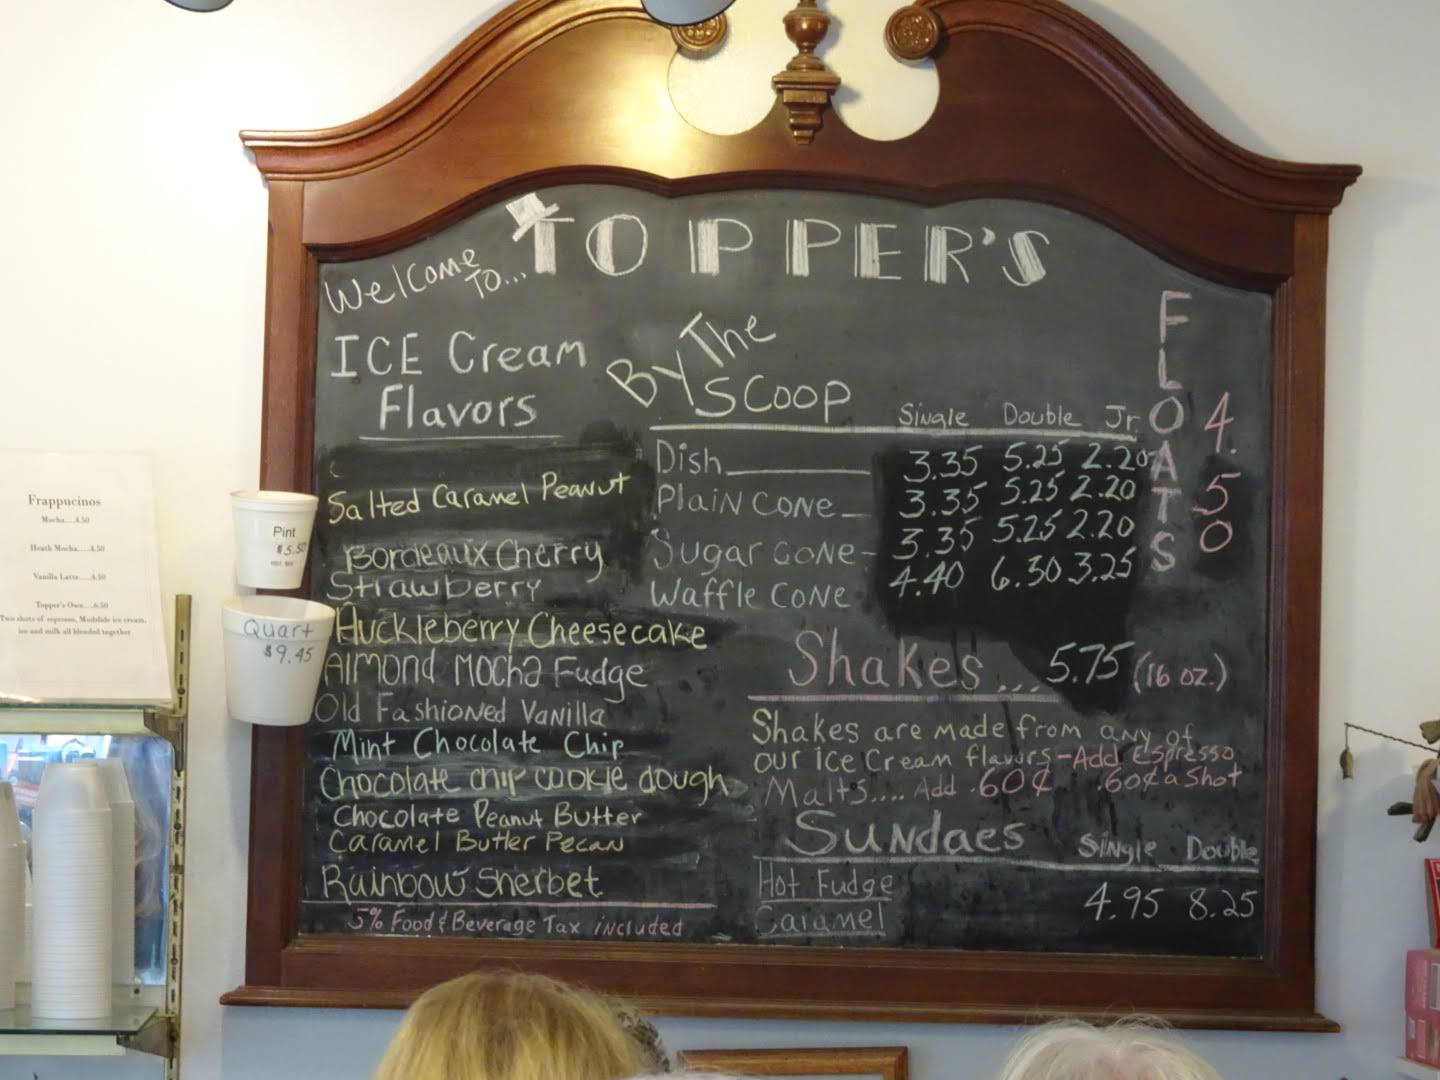 Welcome
To...
TOPPER'S
ICE Cream
Flavors
Salted Caramel Peanut
Bordeaux Cherry
Strawberry
Huckleberry Cheesecake
Almond Mocha Fudge
Old Fashioned Vanilla
Mint Chocolate Chip
Chocolate chip cookie dough
Chocolate Peanut Butter
Caramel Butter Pecan
Rainbow Sherbet
5% Food & Beverage Tax included
By The
Scoop
Single Double Jr.
Dish 3.35 5.25 2.20
Plain Cone 3.35 5.25 2.20
Sugar Cone- 3.35 5.25 2.20
Waffle Cone 4.40 6.30 3.25
FLOATS
4.50
Shakes... 5.75 (16 oz.)
Shakes are made from any of
our Ice Cream flavors-Add Espresso
Malts.... Add .60¢ .60¢ a Shot
Sundaes Single Double
Hot Fudge
Caramel 4.95 8.25
Pint
$5.50
Quart
$9.45
Frappucinos
Mocha....4.50
Heath Mocha.....4.50
Vanilla Latte....4.50
Topper's Own....6.50
Two shots of espresso, Mudslide ice cream,
ice and milk all blended together